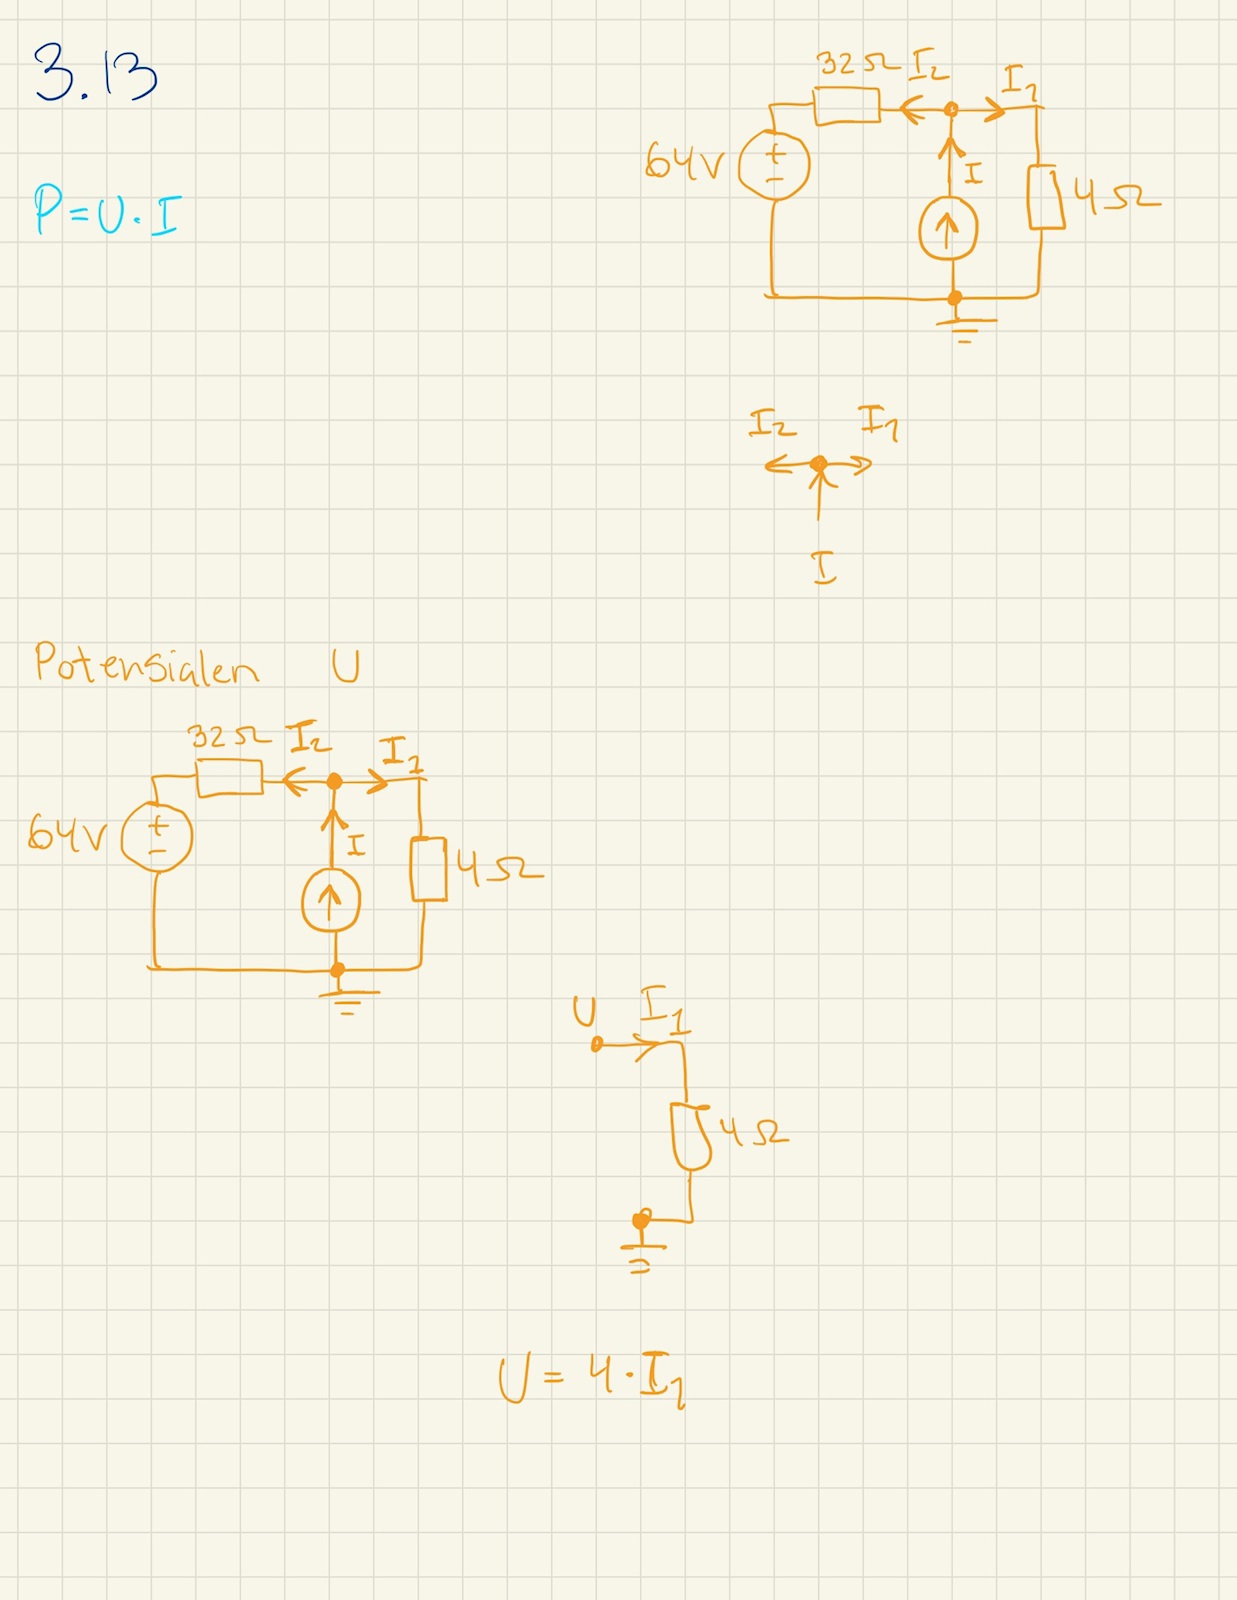 3.13
32Ω I₂ I₁
64V
I
4Ω
P=U·I
I₂ I₁
I
Potensialen U
32Ω I₂ I₁
64V
I
4Ω
U I₁
4Ω
U = 4·I₁